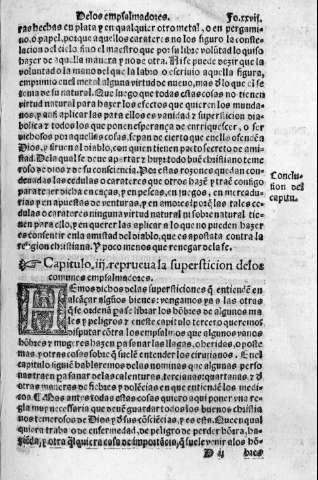 De los empsalmadores. Fo.xxvij.
ras hechas en plata y en qualquier otro metal, o en pergami
no, o papel, porque aquellos carateres no los figuro la conste
lacion del cielo, sino el maestro que por su libre volūtad lo quiso
hazer de aquella manera y no de otra. Ni se puede dezir que la
voluntad o la mano del que la labro o escriuio aquella figura,
imprimio en el metal alguna virtud de nueuo, mas ð lo que el se
tenia de su natural. Que luego que todas estas cosas no tienen
virtud natural para hazer los efectos que quieren los munda
nos, y assi aplicar las para ellos es vanidad y supersticion dia
bolica y todos los que ponen esperança de enrriquescer, o ser
dichosos por aquellas cosas, sepan de cierto que en ello ofendē a
Dios, y siruen al diablo, con quien tienen pacto secreto de amis
tad. De la qual se deue apartar y huyr todo buē christiano teme
roso de dios y de su consciencia. Por estas rozones quedan con
denadas las cedulas o carateres que otros hazē y traē consigo
para tener dicha en caças, y en pescas, en juegos, en mercadu
rias y en apuestas de venturas, y en amores: porq̄ las tales ce
dulas o carateres ninguna virtud natural ni sobre natural tie
nen para ello, y en querer las aplicar a lo que no pueden hazer
es consentir en la amistad del diablo, que es apostata contra la
religion christiana. Y poco menos que renegar de la fe.
Conclu
sion del
capitu.
☞ Capitulo. iij. reprueua la supersticion de los
comunes empsalmadores.
HEmos dichos de las supersticiones q̄ entiendē en
alcāçar algños bienes: vengamos ya a las otras
q̄ se ordenā pa se librar los hōbres de algunos ma
les y peligros y en este capitulo tercero queremos
disputar cōtra los empsalmos que algunos vanos
hōbres y mugeres hazen pa sonar las llagas, o heridas, o poste
mas, y otras cosas sobre q̄ suelē entender los cirujanos. En el
capitulo siguiē hablaremos de las nominas que algunas perso
nas traen pa sanar de las calenturas, tercianas: quartanas, y ð
otras maneras de fiebres y dolēcias en que entienden los medi
cos. ¶ Mas antes todas estas cosas quiero aqui poner vna re
gla muy necessaria que deuē guardar todos los buenos christia
nos temerosos de Dios y ð sus cōsciēcias, y es esta. Que en qual
quiera trabajo de enfermedad, de peligro de perder hōrra, ha
ziēda, y otra q̄lquiera cosa de importācia, q̄ suele venir a los hō-
D ij bres